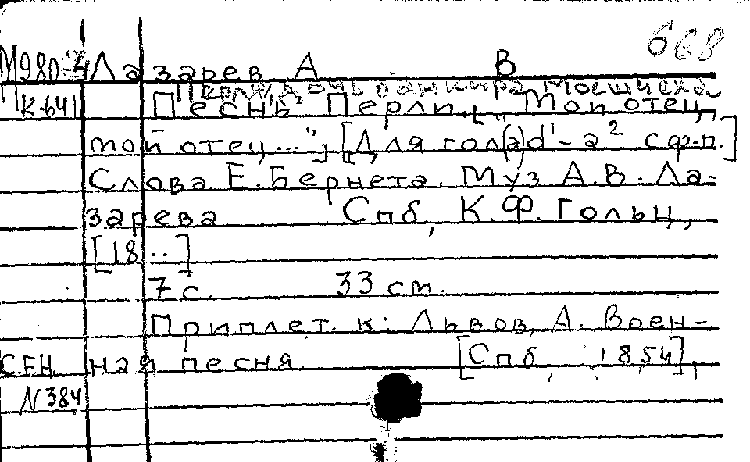 668
М980-4 Лазарев А В
Перл, дочь банкира Мосшиха
К641 Песнь Перли. "Мой отец,
мой отец...", [Для гол(а) d¹-a² с ф.п.]
Слова Е. Бернета. Муз А. В. Ла-
зарева Спб, К. Ф. Гольц,
[18..]
7 с. 33 см.
Приплет. к: Львов, А. Воен-
СЕН ная песня. [Спб, 1854],
N384